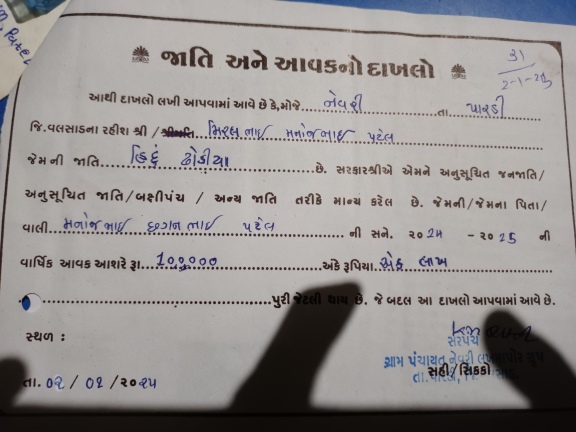 જાતિ અને આવકનો દાખલો
31
2-1-25
આથી દાખલો લખી આપવામાં આવે છે કે,મોજે....નેવરી....તા....પારડી
જિ.વલસાડના રહીશ શ્રી / શ્રીમતિ મિરલભાઇ મનોજભાઇ પટેલ
જેમની જાતિ....હિંદુ ઢોડીયા....છે. સરકારશ્રીએ એમને અનુસૂચિત જનજાતિ/
અનુસૂચિત જાતિ/બક્ષીપંચ / અન્ય જાતિ તરીકે માન્ય કરેલ છે. જેમની/જેમના પિતા/
વાલી....મનોજભાઇ છગનભાઇ પટેલ....ની સને. ૨૦24 -૨૦25 ની
વાર્ષિક આવક આશરે રૂા....100,000....અંકે રૂપિયા..એક લાખ
....પુરી જેટલી થાય છે. જે બદલ આ દાખલો આપવામાં આવે છે.
સ્થળ :
સરપંચ
ગ્રામ પંચાયત નેવરી
સહી/સિક્કો
તા. 02 / 01 /૨૦૨૫